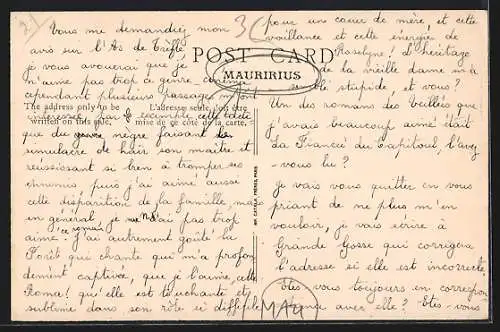 Vous me demandiez mon
avis sur l'As de Trèfle
je vous avouerai que je
n'aime pas trop ce genre, comme
cependant plusieurs passages m'ont
intéressée, par exemple cette
que du nègre faisant le
simulacre de haïr son maître et
réussissant si bien à tromper ses
ennemis, puis j'ai aimé aussi
cette disparition de la famille, mais
en général je n'ai pas trop
aimé ce roman. J'ai autrement goûté la
Forêt qui chante qui m'a profon
dément captivée, que je l'aime, cette
Roma! qu'elle est touchante et
sublime dans son rôle si difficile
POST CARD
MAURITIUS
The address only to be
written on this side.
L'adresse seule doit être
mise de ce côté de la carte.
pour un cœur de mère, et cette
vaillance et cette énergie de
Roselyne! L'héritage
de la vieille dame m'a
semblé stupide, et vous?
Un des romans des Veillées que
j'avais beaucoup aimé était
La Fiancée du Capitoul, l'avez
-vous lu?
je vais vous quitter en vous
priant de ne plus m'en
vouloir, je vais écrire à
Grande Gosse qui corrigera
l'adresse si elle est incorrecte,
êtes vous toujours en correspon
dance avec elle? Êtes-vous
MAU